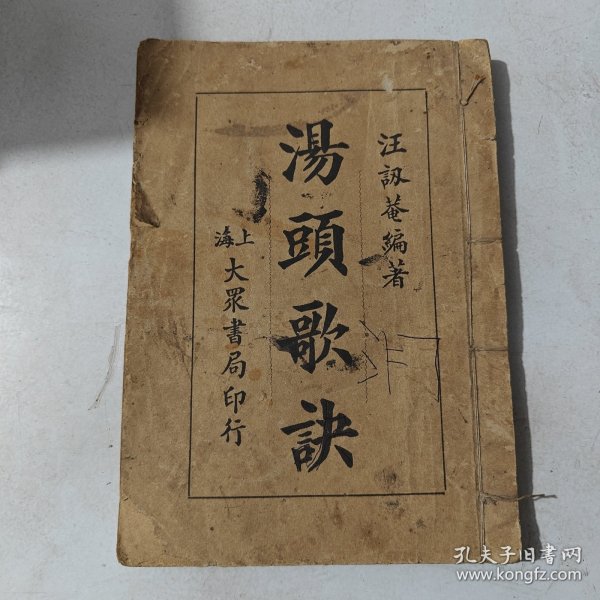 汪訒菴編著
湯頭歌訣
上海
大眾書局印行
孔夫子旧書网
www.kongfz.com